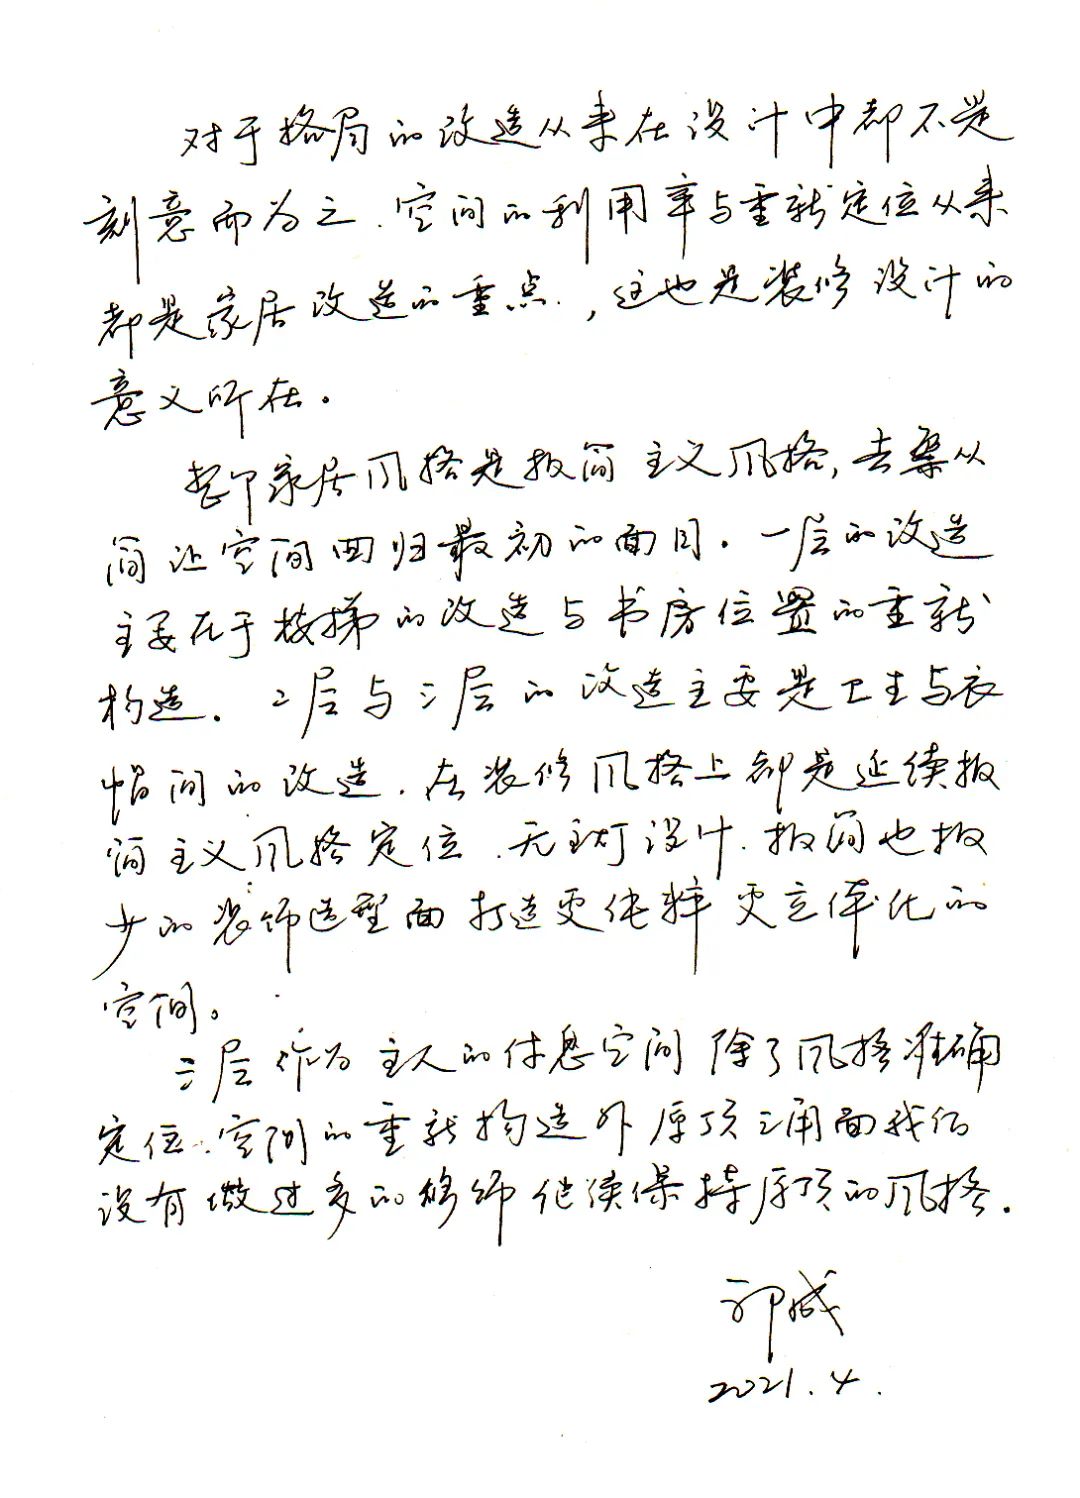 对于格局的改造从来在设计中都不是
刻意而为之.空间的利用率与重新定位从来
都是家居改造的重点.,这也是装修设计的
意义所在.
整个家居风格是极简主义风格,去繁从
简让空间回归最初的面目.一层的改造
主要在于楼梯的改造与书房位置的重新
构造.二层与三层的改造主要是卫生与衣
帽间的改造.在装修风格上都是延续极
简主义风格定位.无主灯设计.极简也极
少的装饰造型面打造更纯粹更立体化的
空间。
三层作为主人的休息空间除了风格准确
定位.空间的重新构造外原顶三角面我们
没有做过多的修饰继续保持原顶的风格.
成
2021.4.